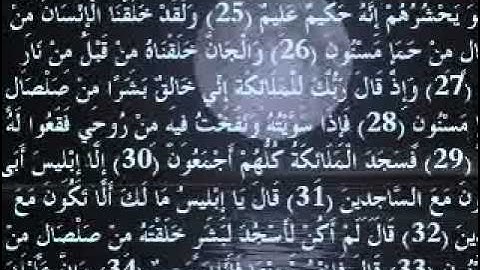 و يَحْشُرُهُمْ إِنَّهُ حَكِيمٌ عَلِيمٌ (25) وَلَقَدْ خَلَقْنَا الْإِنْسَانَ مِنْ
مِنْ حَمَإٍ مَسْنُونٍ (26) وَالْجَانَّ خَلَقْنَاهُ مِنْ قَبْلُ مِنْ نَارِ
(27) وَإِذْ قَالَ رَبُّكَ لِلْمَلَائِكَةِ إِنِّي خَالِقٌ بَشَرًا مِنْ صَلْصَالٍ
مَسْنُونٍ (28) فَإِذَا سَوَّيْتُهُ وَنَفَخْتُ فِيهِ مِنْ رُوحِي فَقَعُوا لَهُ
(29) فَسَجَدَ الْمَلَائِكَةُ كُلُّهُمْ أَجْمَعُونَ (30) إِلَّا إِبْلِيسَ أَبَى
مَعَ السَّاجِدِينَ (31) قَالَ يَا إِبْلِيسُ مَا لَكَ أَلَّا تَكُونَ مَعَ
(32) قَالَ لَمْ أَكُنْ لِأَسْجُدَ لِبَشَرٍ خَلَقْتَهُ مِنْ صَلْصَالٍ مِنْ
(33) قَالَ (34)